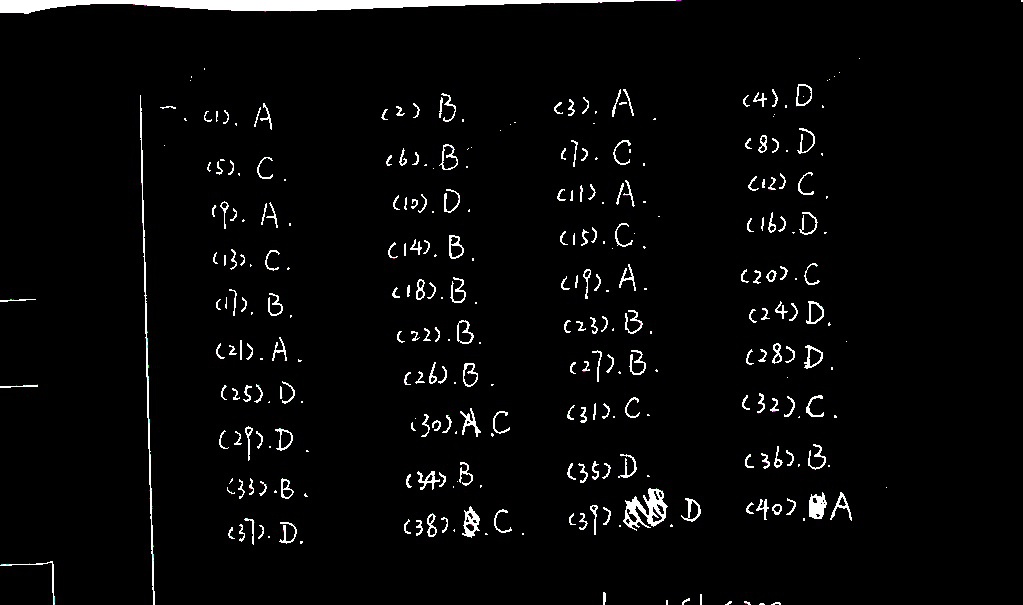 一. (1). A (2) B. (3). A. (4). D.
(5). C. (6). B. (7). C. (8). D.
(9). A. (10). D. (11). A. (12) C.
(13). C. (14). B. (15). C. (16). D.
(17). B. (18). B. (19). A. (20). C
(21). A. (22). B. (23). B. (24) D.
(25). D. (26). B. (27). B. (28) D.
(29). D. (30). C (31). C. (32). C.
(33). B. (34). B. (35) D. (36). B.
(37). D. (38). C. (39). D (40). A